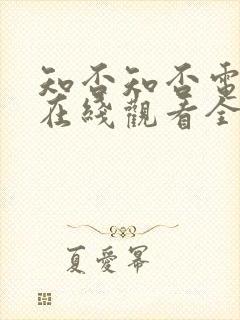 知否知否電
在綫觀看全
夏愛冪